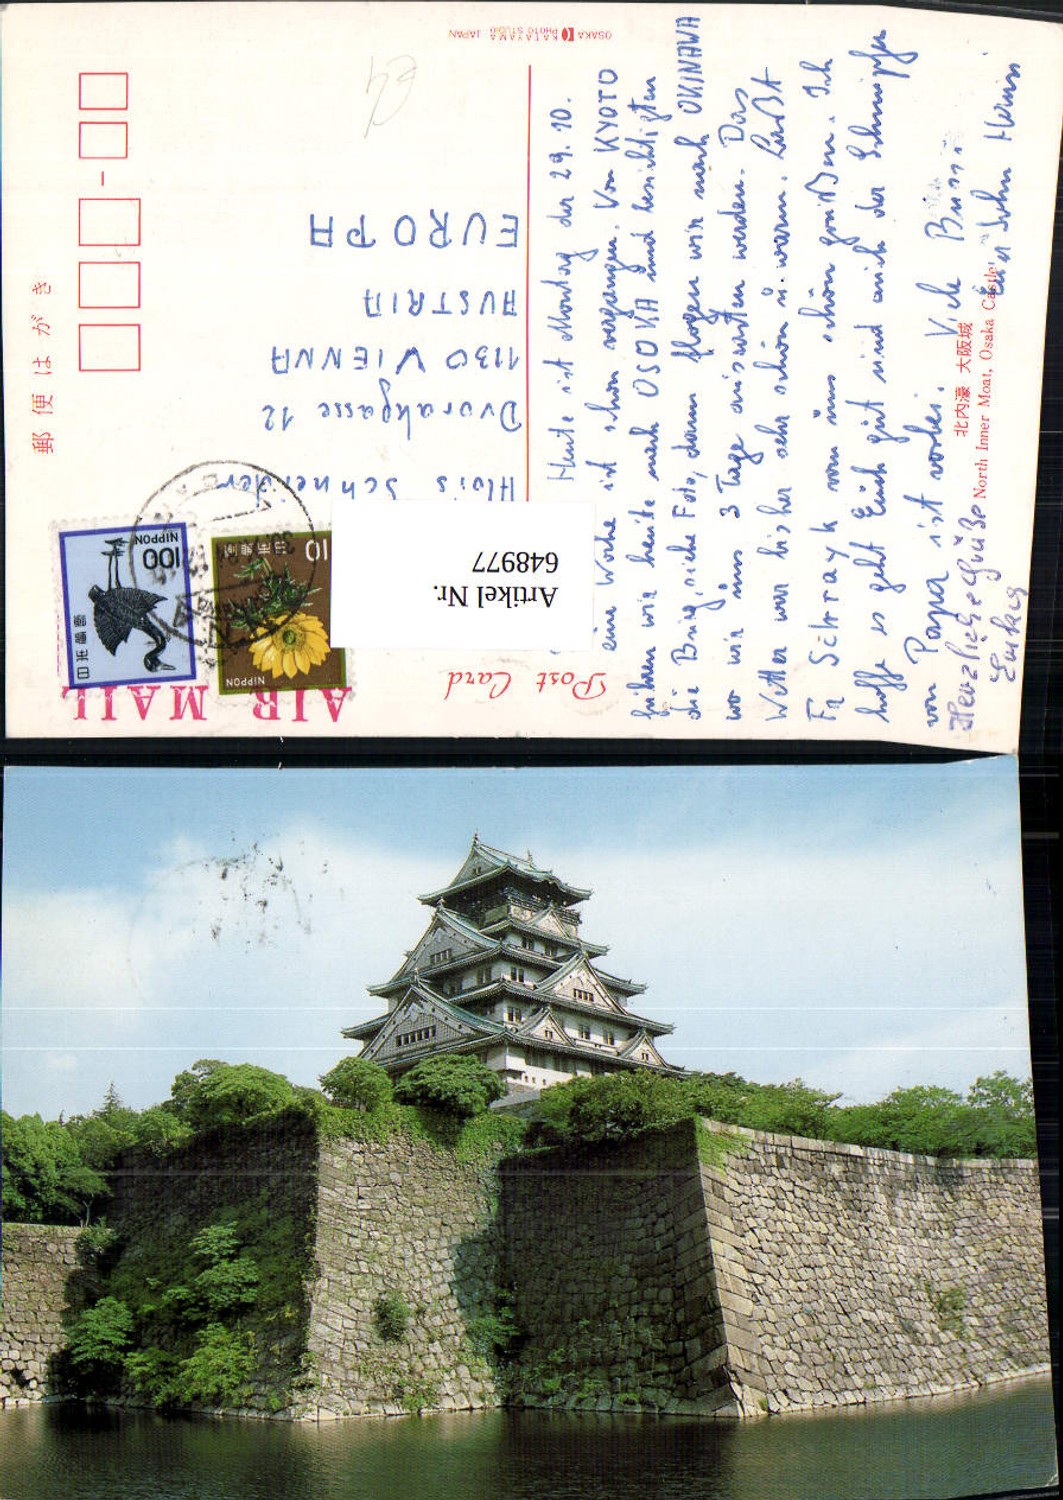 OSAKA KATAYAMA PHOTO STUDIO JAPAN
郵便はがき
Post Card
AIR MAIL
NIPPON
100
日本郵便
10
日本郵便
NIPPON
Artikel Nr.
648977
Alois Schneider
Dvorakgasse 12
1130 VIENNA
AUSTRIA
EUROPA
Heute ist Montag der 29. 10.
eine Woche ist schon vergangen. Von KYOTO
fuhren wir heute nach OSOKA und besichtigten
die Burg, siehe Foto, dann flogen wir nach OKINAWA
wo wir uns 3 Tage aufhalten werden. Das
Wetter war bisher sehr schön u. warm. Läßt
Fr Schrayk von uns schön grüßen. Ich
hoffe es geht Euch gut und auch der Schnupfen
von Papa ist vorbei. Viele Bussi
Euer Sohn Heinz
Herzliche Grüße
北内濠 大阪城
North Inner Moat, Osaka Castle